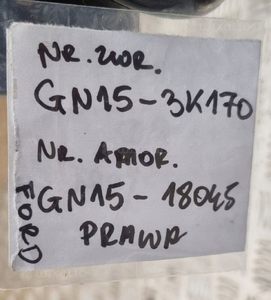 NR. ZWOR.
GN15-3K170
NR. AMOR.
GN15-18045
PRAWA
FORD